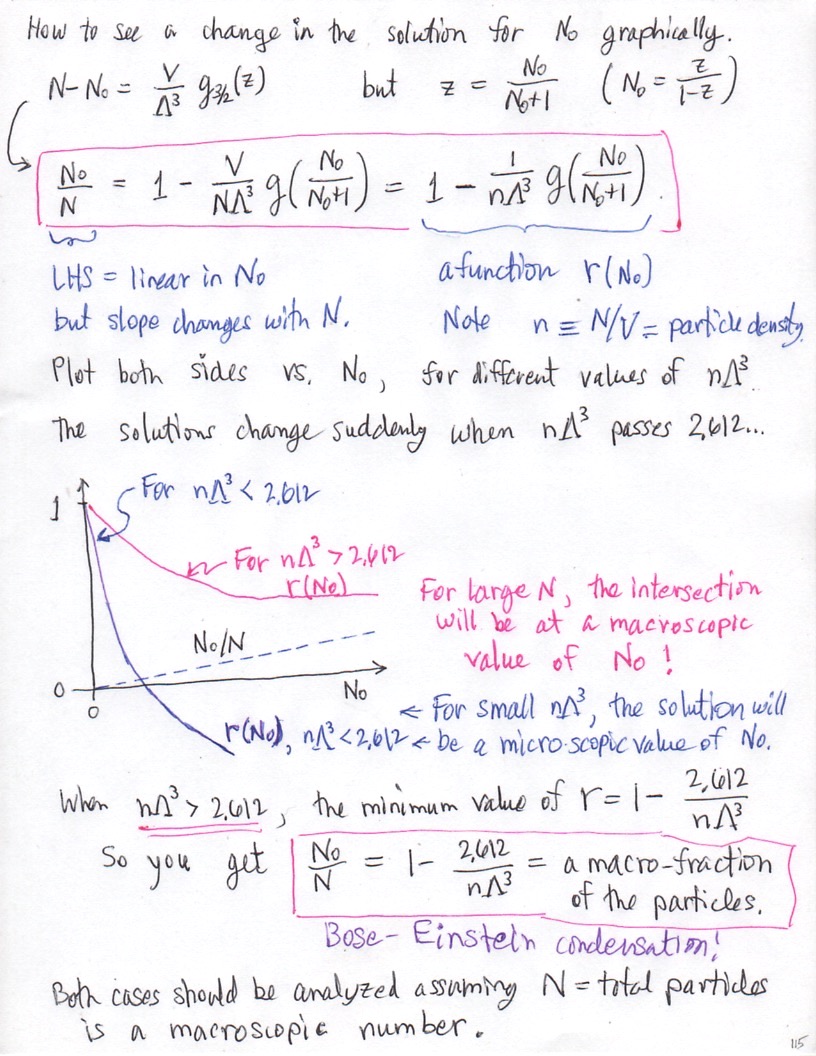 How to see a change in the solution for No graphically.
N-No = V/Λ³ g3/2(z) but z = No/(No+1) (No = z/(1-z))
No/N = 1 - V/(NΛ³) g(No/(No+1)) = 1 - 1/(nΛ³) g(No/(No+1)).
LHS = linear in No a function r(No)
but slope changes with N. Note n ≡ N/V = particle density.
Plot both sides vs. No, for different values of nΛ³
The solutions change suddenly when nΛ³ passes 2.612...
1
For nΛ³ < 2.612
For nΛ³ > 2.612
r(No)
For large N, the intersection
will be at a macroscopic
value of No!
No/N
0
No
0
r(No), nΛ³ < 2.612
← For small nΛ³, the solution will
← be a micro-scopic value of No.
When nΛ³ > 2.612, the minimum value of r = 1 - 2.612/(nΛ³)
So you get No/N = 1 - 2.612/(nΛ³) = a macro-fraction
of the particles.
Bose-Einstein condensation!
Both cases should be analyzed assuming N = total particles
is a macroscopic number.
115